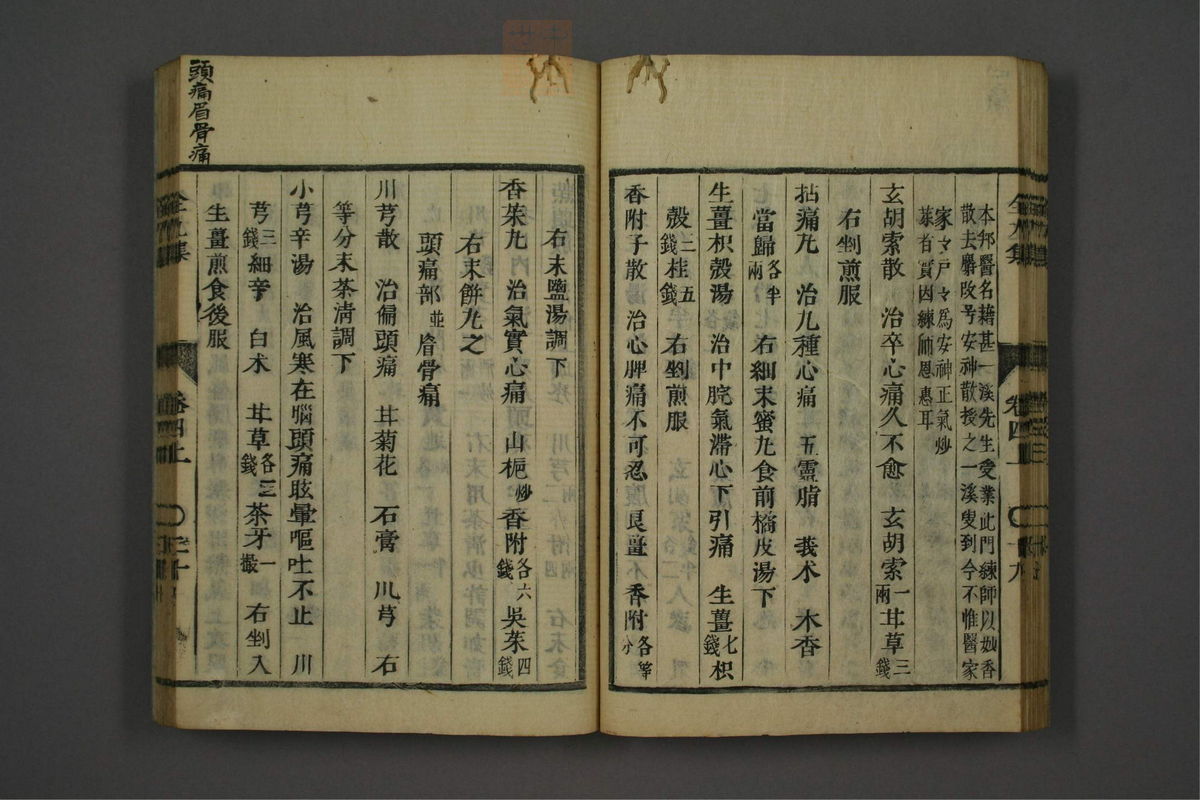 本邦醫名藉甚一溪先生受業此門練師以妙香
散去麝改号安神散授之一溪叟到今不惟醫家
家々戸々為安神正氣炒
菉者實因練師恩惠耳
玄胡索散 治卒心痛久不愈 玄胡索一兩 甘草三錢
右剉煎服
拈痛丸 治九種心痛 五靈脂 莪术 木香
當歸各半兩 右細末蜜丸食前橘皮湯下
生薑枳殼湯 治中脘氣滯心下引痛 生薑七錢 枳
殼三錢 桂五錢 右剉煎服
香附子散 治心脾痛不可忍 良薑 香附各等分
右末鹽湯調下
香茱丸 治氣實心痛 山梔炒 香附各六錢 吳茱四錢
右末餅丸之
頭痛部 並眉骨痛
川芎散 治偏頭痛 甘菊花 石膏 川芎 右
等分末茶淸調下
小芎辛湯 治風寒在腦頭痛眩暈嘔吐不止 川
芎三錢 細辛 白术 甘草各三錢 茶牙一撮 右剉入
生薑煎食後服
頭痛眉骨痛
卷四上
十九
卷四上
二十